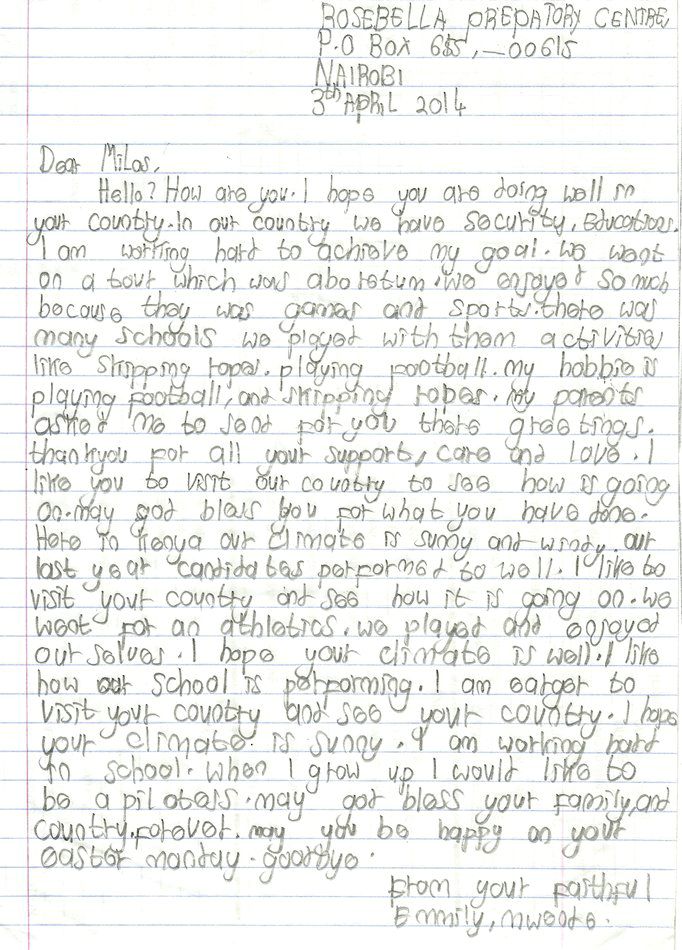 ROSEBELLA PREPATORY CENTRE
P.O BOX 655, -00615
NAIROBI
3th APRIL 2014
Dear Milos,
Hello? How are you. I hope you are doing well in
your country. In our country we have security, Educations.
I am working hard to achieve my goal. we went
on a tour which was aboretum. we enjoyed so much
because they was games and sports. there was
many schools we played with them activities
like skipping ropes. playing football. my hobbie is
playing football, and skipping ropes. my parents
asked me to send for you there greetings.
thankyou for all your support, care and love. I
like you to visit our country to see how is going
on. may god bless you for what you have done.
Here in kenya our climate is sunny and windy. our
last year candidates performed to well. I like to
visit your country and see how it is going on. we
went for an athletics. we played and enjoyed
our selves. I hope your climate is well. I like
how our school is performing. I am earger to
visit your country and see your country. I hope
your climate is sunny. I am working hard
in school. when I grow up I would like to
be a pilotess. may god bless your family, and
country. forever. may you be happy on your
easter manday. goodbye.
From your faithful
Emmily, mweede.